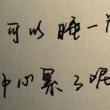 可以睡一
中心累了呢